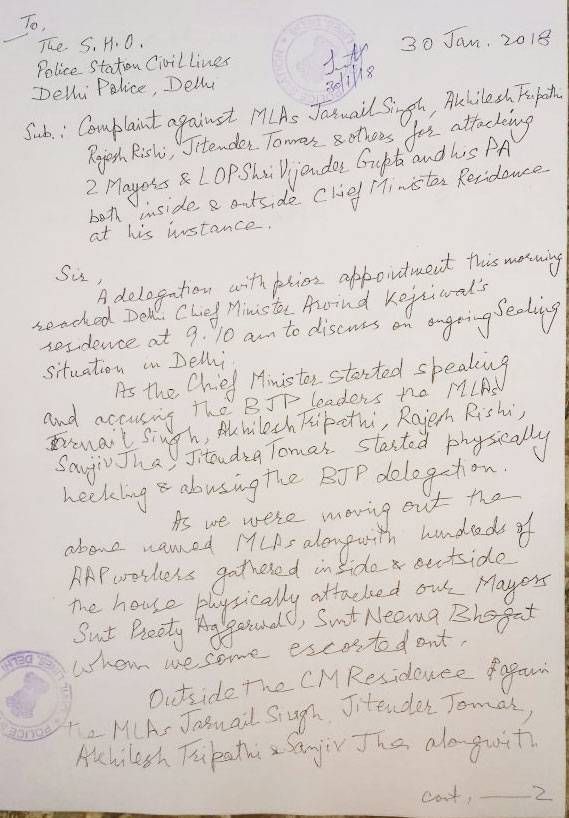 To,
The S.H.O.
Police Station Civil Lines
Delhi Police, Delhi
30 Jan. 2018
30/1/18
Sub.: Complaint against MLAs Jarnail Singh, Akhilesh Tripathi
Rajesh Rishi, Jitender Tomar & others for attacking
2 Mayors & LOP Shri Vijender Gupta and his PA
both inside & outside Chief Minister Residence
at his instance.
Sir,
A delegation with prior appointment this morning
reached Delhi Chief Minister Arvind Kejriwal's
residence at 9.10 am to discuss on ongoing Sealing
Situation in Delhi.
As the Chief Minister started speaking
and accusing the BJP leaders the MLAs
Jarnail Singh, Akhilesh Tripathi, Rajesh Rishi,
Sanjiv Jha, Jitendra Tomar started physically
heckling & abusing the BJP delegation.
As we were moving out the
above named MLAs alongwith hundreds of
AAP workers gathered inside & outside
the house physically attacked our Mayors
Smt Preety Aggarwal, Smt Neema Bhagat
whom we some escorted out.
Outside the CM Residence again
the MLAs Jarnail Singh, Jitender Tomar,
Akhilesh Tripathi & Sanjiv Jha alongwith
cont. — 2